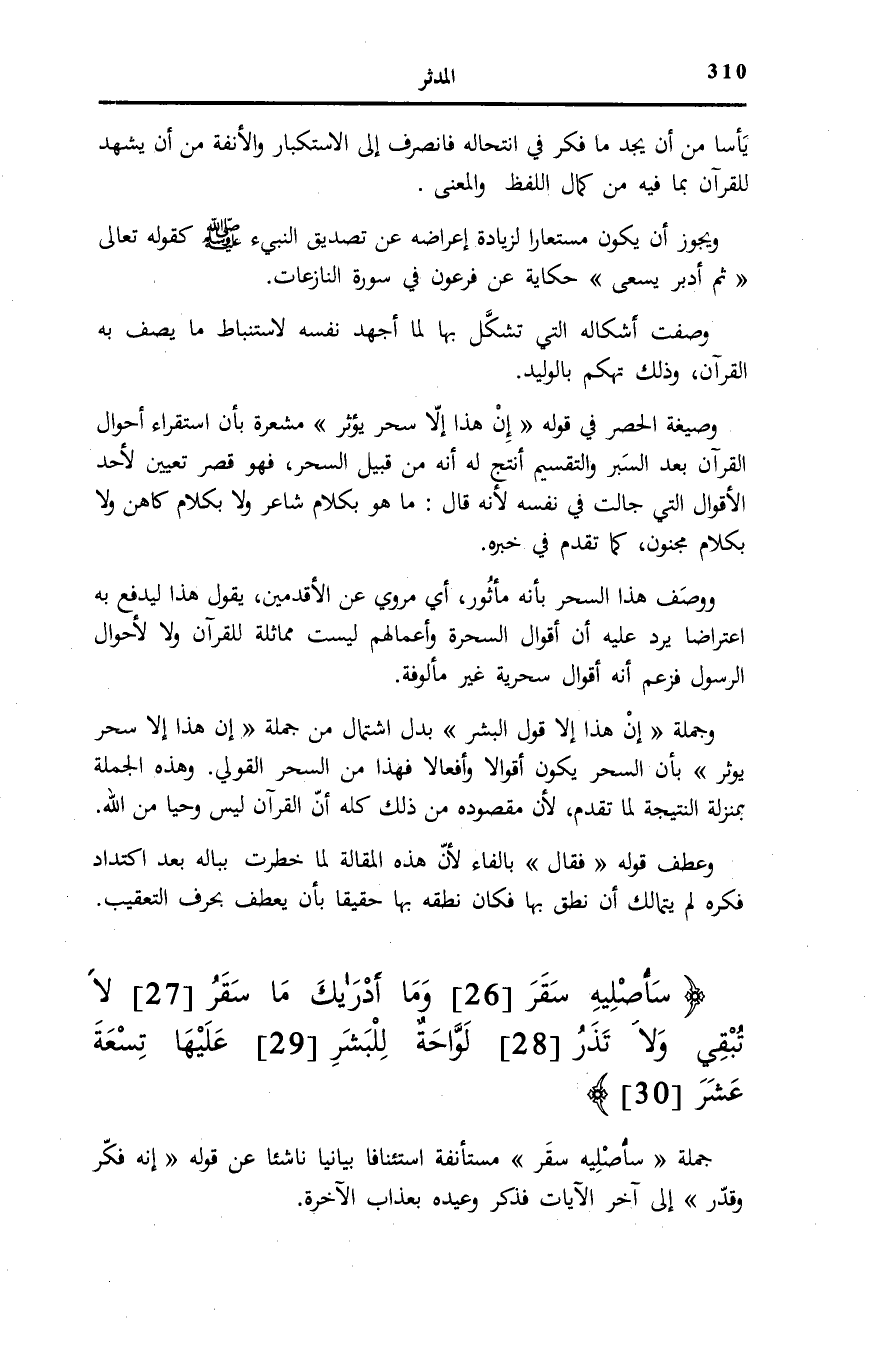 310
المدثر
يَأسا من أن يجد ما فكر في انتحاله فانصرف إلى الاستكبار والأنفة من أن يشهد
للقرآن بما فيه من كمال اللفظ والمعنى .
ويجوز أن يكون مستعارا لزيادة إعراضه عن تصديق النبيء ﷺ كقوله تعالى
« ثم أدبر يسعى » حكاية عن فرعون في سورة النازعات.
وصفت أشكاله التي تشكَّل بها لما أجهد نفسه لاستنباط ما يصف به
القرآن، وذلك تهكم بالوليد.
وصيغة الحصر في قوله « إِنْ هذا إلّا سحر يؤثر » مشعرة بأن استقراء أحوال
القرآن بعد السَبر والتقسيم أنتج له أنه من قبيل السحر، فهو قصر تعيين لأحد
الأقوال التي جالت في نفسه لأنه قال : ما هو بكلام شاعر ولا بكلام كاهن ولا
بكلام مجنون، كما تقدم في خبره.
ووصَف هذا السحر بأنه مأثُور، أي مروي عن الأقدمين، يقول هذا ليدفع به
اعتراضا يرد عليه أن أقوال السحرة وأعمالهم ليست مماثلة للقرآن ولا لأحوال
الرسول فزعم أنه أقوال سحرية غير مألوفة.
وجملة « إنْ هذا إلا قول البشر » بدل اشتمال من جملة « إن هذا إلا سحر
يوثر » بأن السحر يكون أقوالا وأفعالا فهذا من السحر القولي. وهذه الجملة
بمنزلة النتيجة لما تقدم، لأن مقصوده من ذلك كله أنّ القرآن ليس وحيا من الله.
وعطف قوله « فقال » بالفاء لأنّ هذه المقالة لما خطرت بباله بعد اكتداد
فكره لم يتمالك أن نطق بها فكان نطقه بها حقيقا بأن يعطف بحرف التعقيب.
﴿ سَأُصْلِيهِ سَقَرَ [26] وَمَا أَدْرَيٰكَ مَا سَقَرُ [27] لاَ
تُبْقِي وَلاَ تَذَرُ [28] لَوَّاحَةٌ لِلْبَشَرِ [29] عَلَيْهَا تِسْعَةَ
عَشَرَ [30] ﴾
جملة « سأُصْلِيه سقَر » مستأنفة استئنافا بيانيا ناشئا عن قوله « إنه فكّر
وقدّر » إلى آخر الآيات فذكر وعيده بعذاب الآخرة.